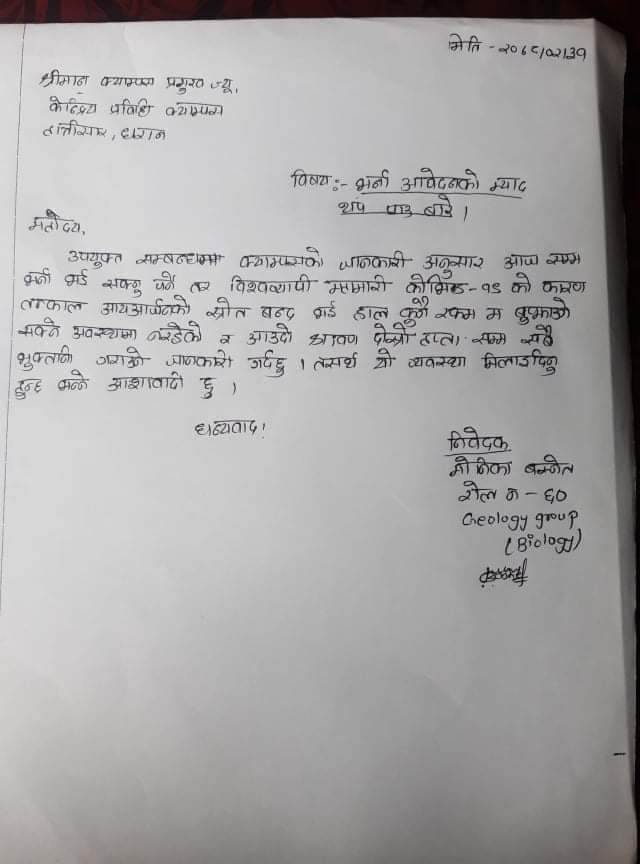 मिति - २०७८/०२/३१
श्रीमान क्याम्पस प्रमुख ज्यू,
केन्द्रिय प्रविधि क्याम्पस
हात्तीसार, धरान
विषय:- भर्ना आवेदनको म्याद
थप पाउ बारे ।
महोदय,
उपयुक्त सम्बन्धमा क्याम्पसको जानकारी अनुसार आज सम्म
भर्ना भई सक्नु पर्ने तर विश्वव्यापी महामारी कोभिड-१९ को कारण
तत्काल आयआर्जनको स्रोत बन्द भई हाल कुनै रकम म बुझाउने
सक्ने अवस्थामा नरहेको र आउदो श्रावण दोस्रो हप्ता सम्म सबै
भुक्तानी गराउने जानकारी गर्दछु । तसर्थ यो व्यवस्था मिलाईदिनु
हुन्छ भन्ने आशावादी छु ।
धन्यवाद!
निवेदक
मोनिका बस्नेत
रोल न - ६०
Geology group
(Biology)